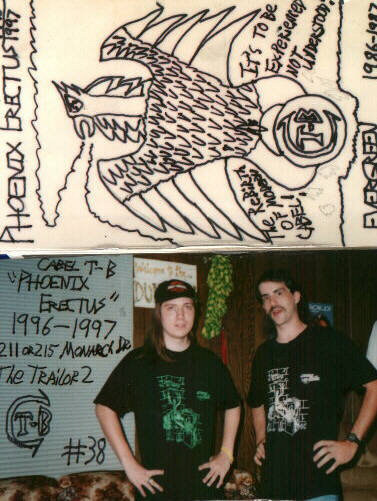 PHOENIX ERECTUS 1997
IT'S TO BE
EXPERIENCED
NOT
UNDERSTOOD!
T-B
CABEL!
EVERGREEN 1986-1987
CABEL T-B
"PHOENIX
ERECTUS"
1996-1997
211 OR 215 MONARCH DR
The TRAILOR 2
T-B
#38
Welcome to the...
DU